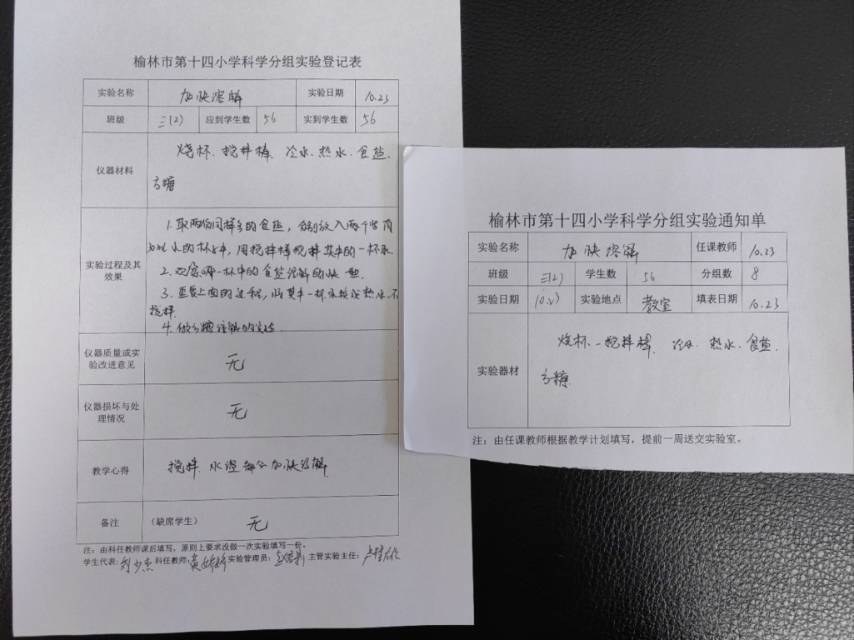 榆林市第十四小学科学分组实验登记表
实验名称 加快溶解 实验日期 10.23
班级 三(2) 应到学生数 56 实到学生数 56
仪器材料 烧杯、搅拌棒、冷水、热水、食盐、
方糖
实验过程及其效果
1.取两份同样多的食盐,分别放入两个
水的杯中,用搅拌棒搅拌其中的一杯水
2.观察哪一杯中的食盐溶解的快一些.
3.重复上面的过程,将其中一杯水换成热水,不
搅拌.
4.做方糖溶解的实验
仪器质量或实验改进意见 无
仪器损坏与处理情况 无
教学心得 搅拌、水温都会加快溶解
备注 (缺席学生) 无
注:由科任教师课后填写,原则上要求没做一次实验填写一份。
学生代表: 科任教师: 实验管理员: 主管实验主任:
榆林市第十四小学科学分组实验通知单
实验名称 加快溶解 任课教师 10.23
班级 三(2) 学生数 56 分组数 8
实验日期 实验地点 教室 填表日期 10.23
实验器材 烧杯、搅拌棒、冷水、热水、食盐、
方糖
注:由任课教师根据教学计划填写,提前一周送交实验室。